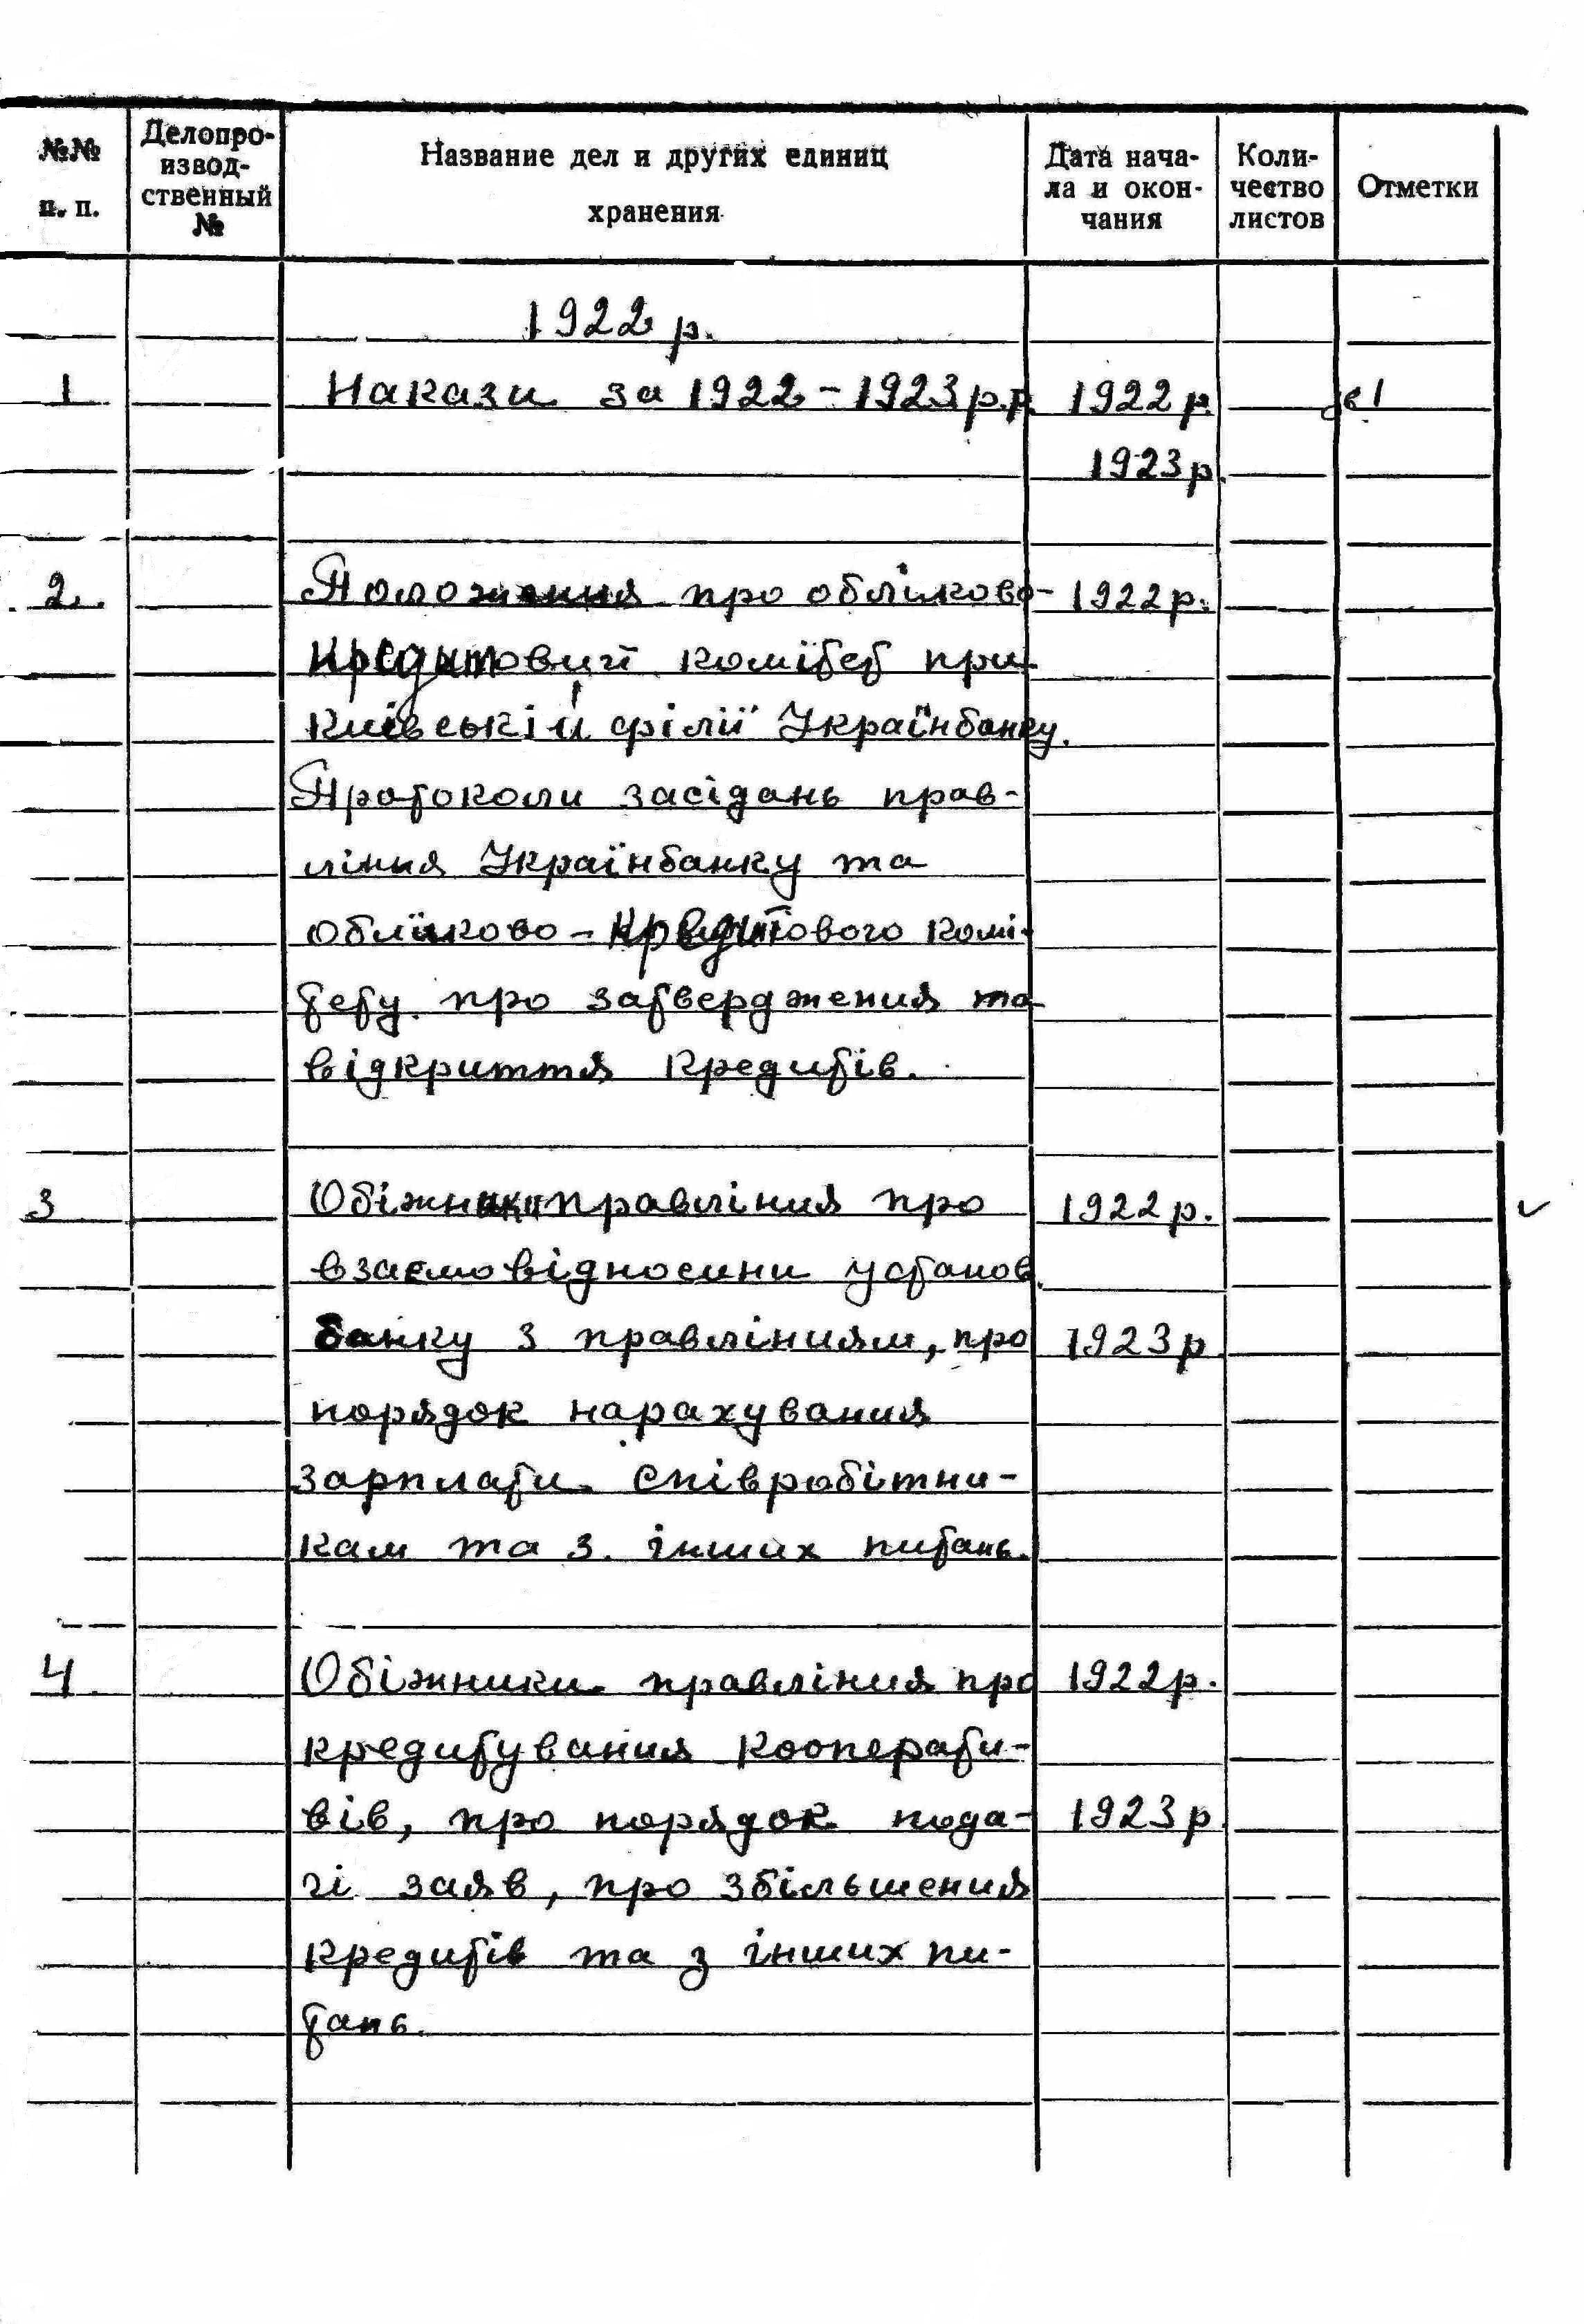 №№ п. п.
Делопро-
извод-
ственный
№
Название дел и других единиц
хранения
Дата нача-
ла и окон-
чания
Коли-
чество
листов
Отметки
1922 р.
1 Накази за 1922 - 1923 р.р. 1922 р.
1923 р.
2. Положення про обліково- 1922 р.
кредитовий комітет при
Київській філії Українбанку.
Протоколи засідань прав-
ління Українбанку та
обліково - кредитового комі-
тету про затвердження та
відкриття кредитів.
3 Обіжники правління про 1922 р.
взаємовідносини установ
банку з правлінням, про 1923 р.
порядок нарахування
зарплати співробітни-
кам та з інших питань.
4 Обіжники правління про 1922 р.
кредитування кооперати-
вів, про порядок пода- 1923 р.
чі заяв, про збільшення
кредитів та з інших пи-
тань.